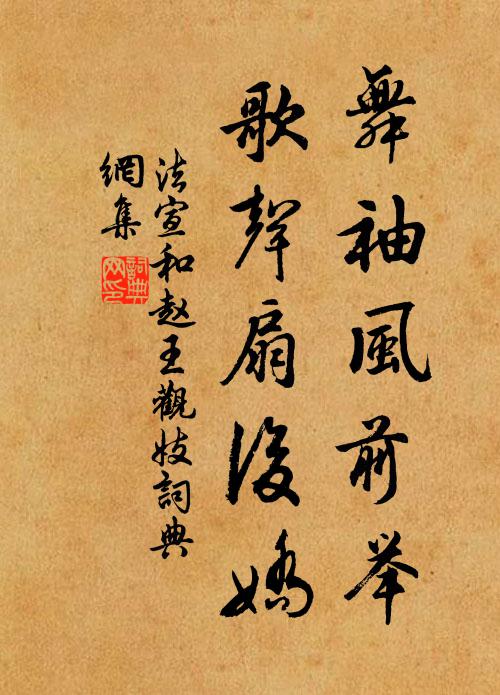 舞袖風前举
歌聲扇後嬌
法宣和赵王觀妓詞典
網集
詞典網印